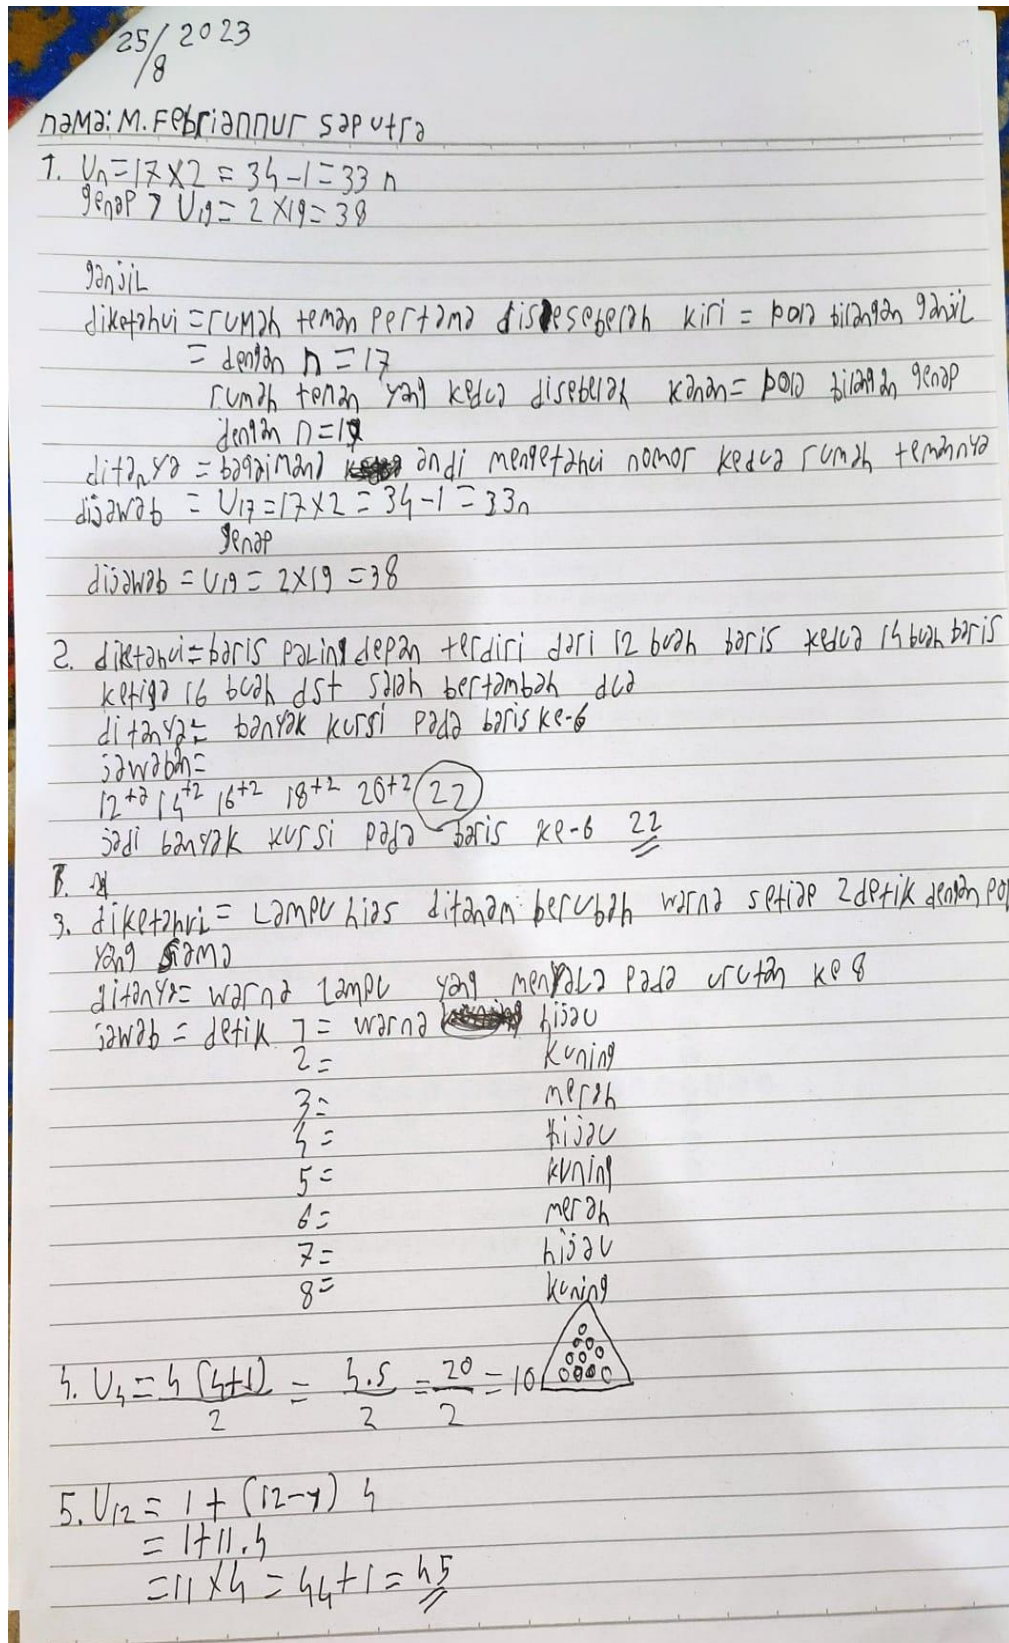 25/8 2023
nama: M. Febriannur saputra
1. Un = 17 x 2 = 34 - 1 = 33 n
genap > U19 = 2 x 19 = 38
ganjiL
diketahui = rumah teman pertama diseseberah kiri = pola bilangan ganjiL
= dengan n = 17
rumah teman yang kedua diseberah kanan = pola bilangan genap
dengan n = 19
ditanya = bagaimana andi mengetahui nomor kedua rumah temannya
dijawab = U17 = 17 x 2 = 34 - 1 = 33n
genap
dijawab = U19 = 2 x 19 = 38
2. diketahui = baris paLing depan terdiri dari 12 buah baris kedua 14 buah baris
ketiga 16 buah dst salah bertambah dua
ditanya = banyak kursi pada baris ke-6
jawaban =
12 +2 14 +2 16 +2 18 +2 20 +2 22
jadi banyak kursi pada baris ke-6 22
3. diketahui = Lampu hias ditanam berubah warna setiap 2 detik dengan po
yang sama
ditanya = warna Lampu yang menyaLa pada urutan ke 8
jawab = detik 1 = warna hijau
2 = kuning
3 = merah
4 = hijau
5 = kuning
6 = merah
7 = hijau
8 = kuning
4. U4 = 4 (4+1) / 2 = 4.5 / 2 = 20 / 2 = 10
5. U12 = 1 + (12-1) 4
= 1 + 11 . 4
= 11 x 4 = 44 + 1 = 45